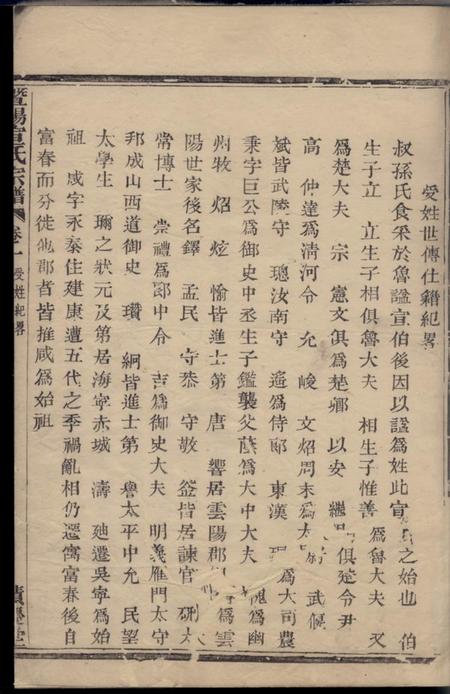 受姓世傳仕籍紀畧
叔孫氏食采於魯謚宣伯後因以謚爲姓此宣氏之始也 伯
生子立 立生子相俱魯大夫 相生子惟善 爲魯大夫 又
爲楚大夫 宗 憲文俱爲楚卿 以安 繼 俱楚令尹
高 仲達爲清河令 允 峻 文炤周末爲太 武候
斌皆武陵守 璁汝南守 遙爲侍郎 東漢 爲大司農
秉字巨公爲御史中丞生子鑑襲父蔭爲大中大夫 爲幽
州牧 炤 炫 愉皆進士第 唐 響居雲陽郡 爲雲
陽世家後名鐸 孟民 守恭 守敬 簽皆居諫官 研太
常博士 崇禮爲郎中令 吉爲御史大夫 明義雁門太守
邦成山西道御史 瓚 綱皆進士第 譽太平中允 民望
太學生 璛之狀元及第居海寧赤城 濤 廸遷吳寧爲始
祖 咸字永泰住建康遭五代之季禍亂相仍遷寓富春後自
富春而分徙他郡者皆推咸爲始祖
暨陽宣氏宗譜 卷一 受姓紀畧